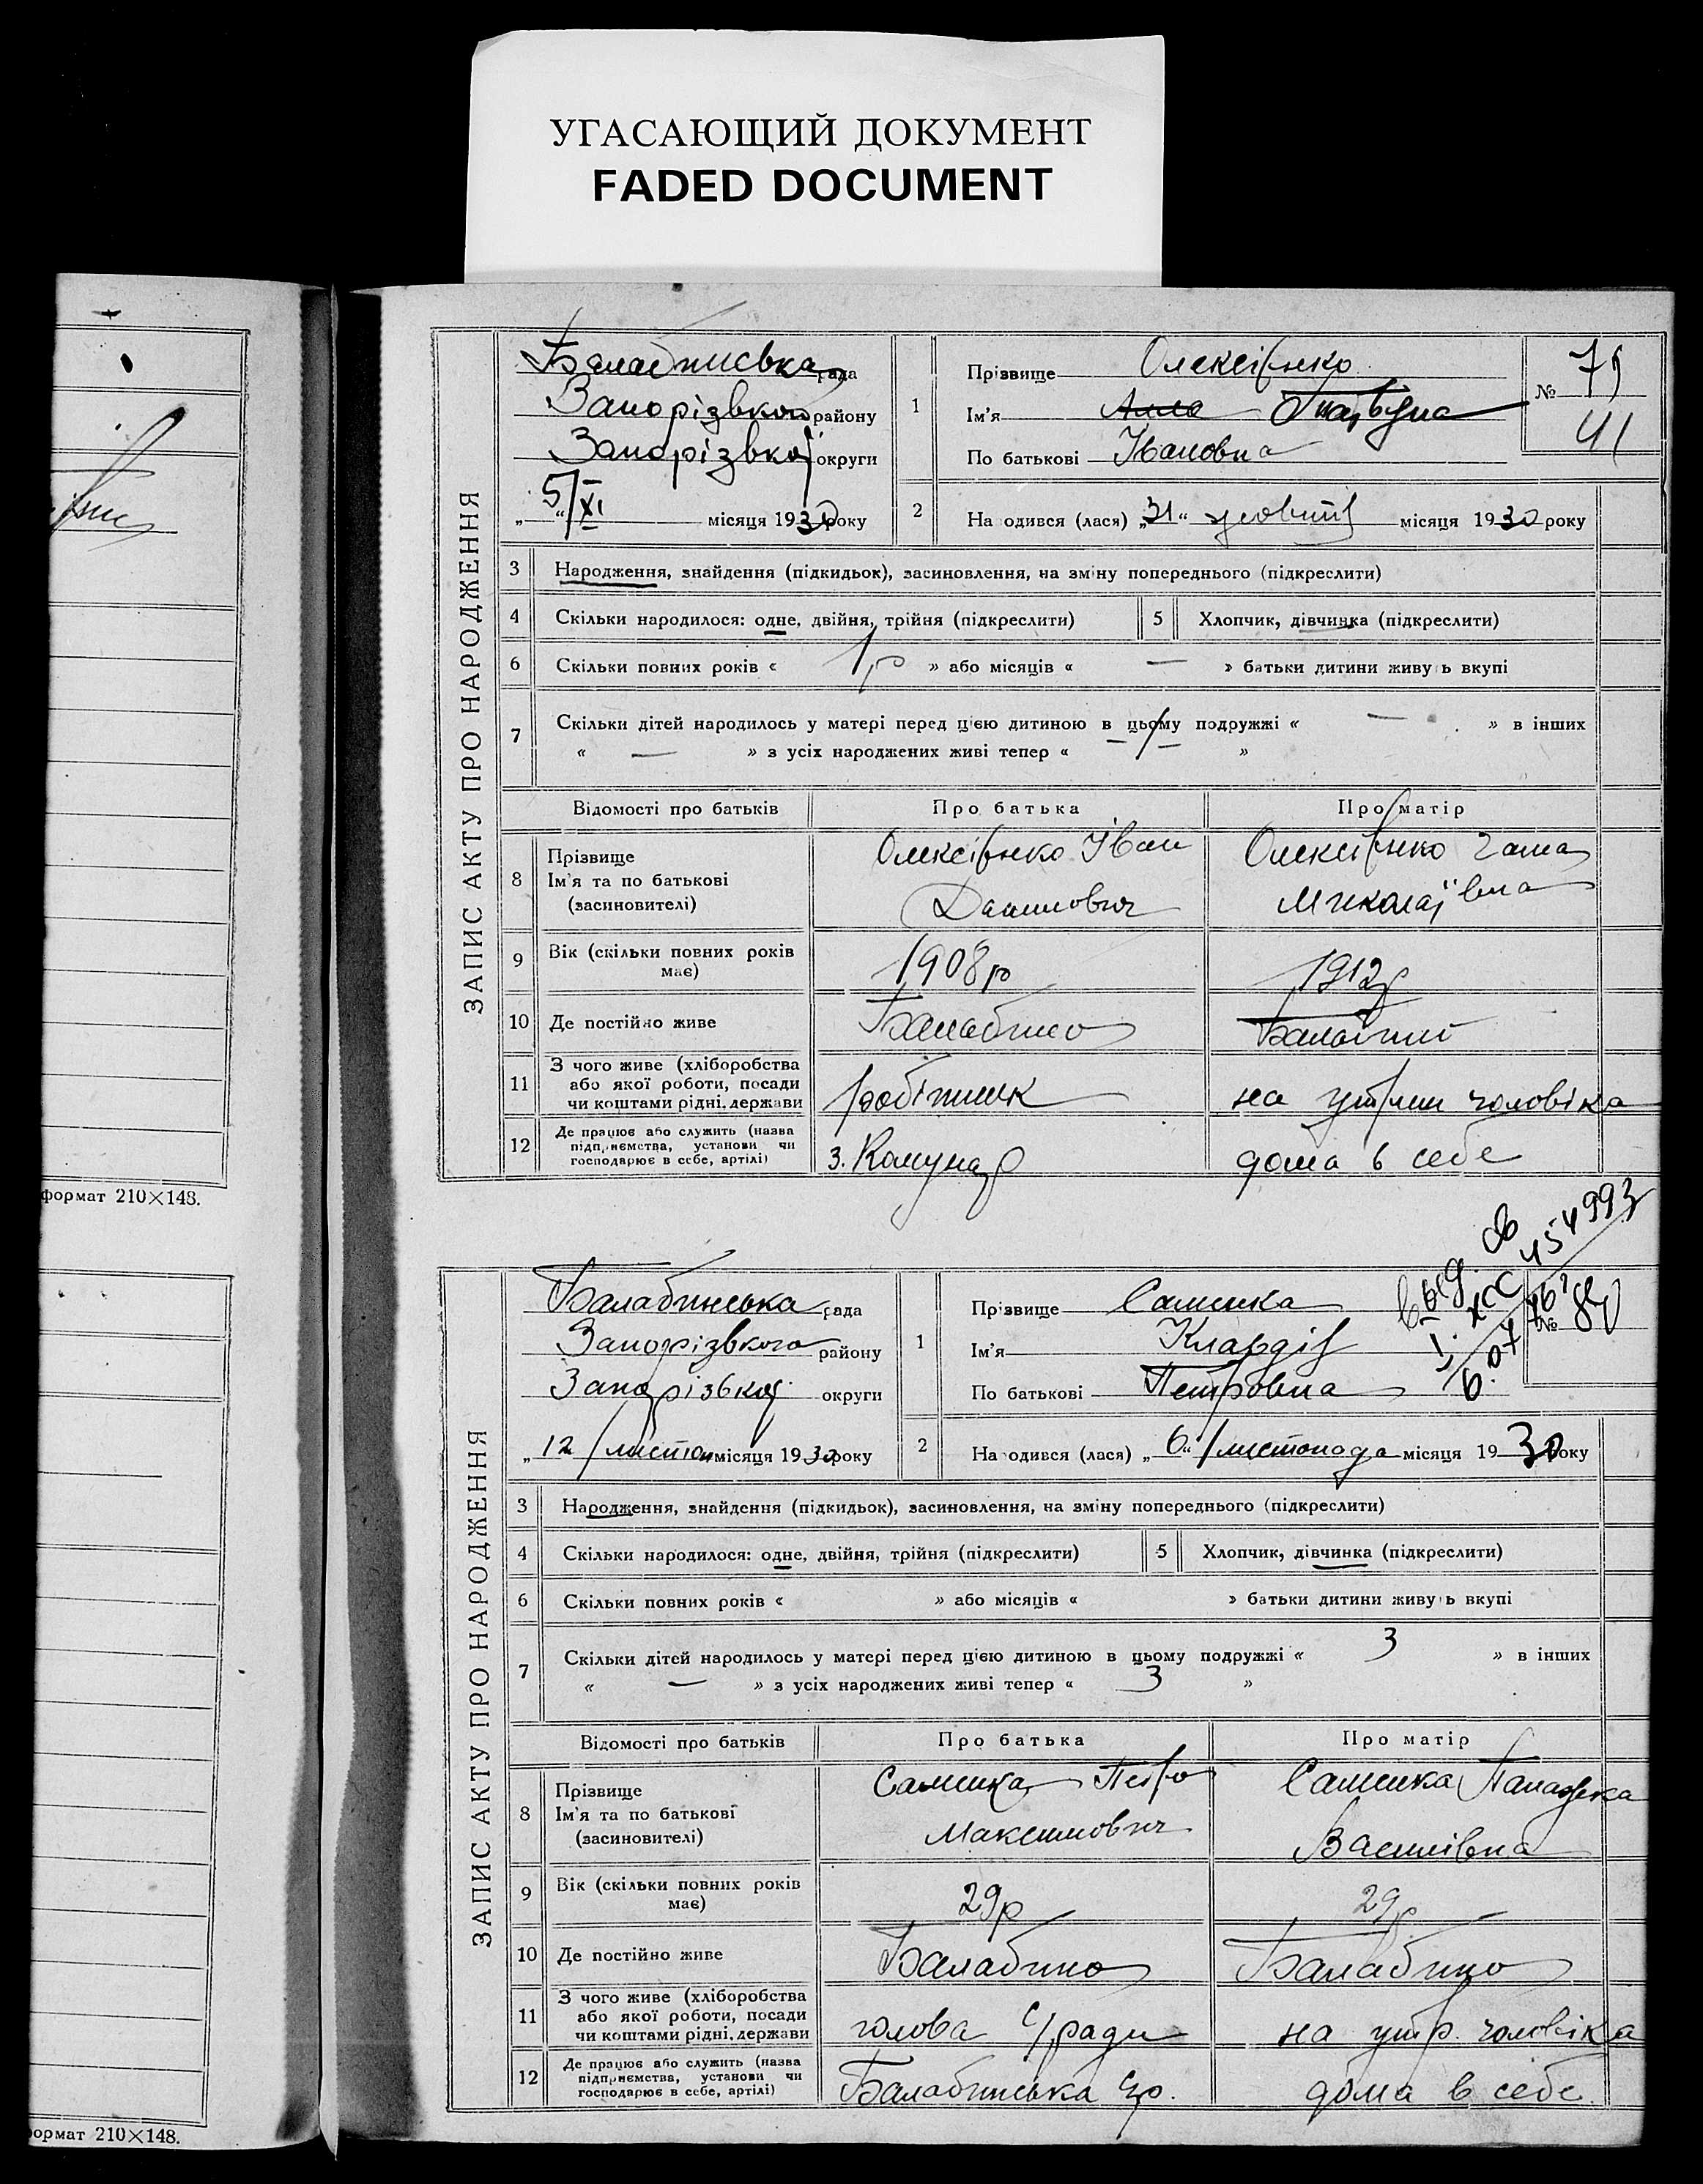 УГАСАЮЩИЙ ДОКУМЕНТ
FADED DOCUMENT
формат 210×148.
формат 210×148.
ЗАПИС АКТУ ПРО НАРОДЖЕННЯ
рада
Запорізвкого району
Запорізвкої округи
„5/XI“ місяця 1930 року
1
Прізвище Олексієнко
Ім'я Алла
По батькові Івановна
№ 79
41
2
На одився (лася) „31“ жовтня місяця 1930 року
3 Народження, знайдення (підкидьок), засиновлення, на зміну попереднього (підкреслити)
4 Скільки народилося: одне, двійня, трійня (підкреслити) 5 Хлопчик, дівчинка (підкреслити)
6 Скільки повних років « 1 р » або місяців « — » батьки дитини живуть вкупі
7 Скільки дітей народилось у матері перед цією дитиною в цьому подружжі « — » в інших
« — » з усіх народжених живі тепер « »
Відомості про батьків Про батька Про матір
8 Прізвище Ім'я та по батькові (засновителі)
Олексієнко Іван
Данилович
Олексієнко Галя
Миколаївна
9 Вік (скільки повних років має) 1908 р 1912 р
10 Де постійно живе Балабино Балабино
11 З чого живе (хліборобства або якої роботи, посади чи коштами рідні, держави Робітник на утрим чоловіка
12 Де працює або служить (назва підприємства, установи чи господарює в себе, артілі) з. Комунар дома в себе
выд. св
454993
ЗАПИС АКТУ ПРО НАРОДЖЕННЯ
Балабинська рада
Запорізвкого району
Запорізької округи
„12 листоп місяця 1930 року
1
Прізвище
Ім'я Клардія
По батькові Петровна
№ 80
2
На одився (лася) „6“ листопада місяця 1930 року
3 Народження, знайдення (підкидьок), засиновлення, на зміну попереднього (підкреслити)
4 Скільки народилося: одне, двійня, трійня (підкреслити) 5 Хлопчик, дівчинка (підкреслити)
6 Скільки повних років « » або місяців « » батьки дитини живуть вкупі
7 Скільки дітей народилось у матері перед цією дитиною в цьому подружжі « 3 » в інших
« — » з усіх народжених живі тепер « 3 »
Відомості про батьків Про батька Про матір
8 Прізвище Ім'я та по батькові (засиновителі)
Петро
Максимович
Палажка
Василівна
9 Вік (скільки повних років має) 29 р 29 р
10 Де постійно живе Балабино Балабино
11 З чого живе (хліборобства або якої роботи, посади чи коштами рідні, держави голова с/ради на утр. чоловіка
12 Де працює або служить (назва підприємства, установи чи господарює в себе, артілі) Балабинська с/р. дома в себе